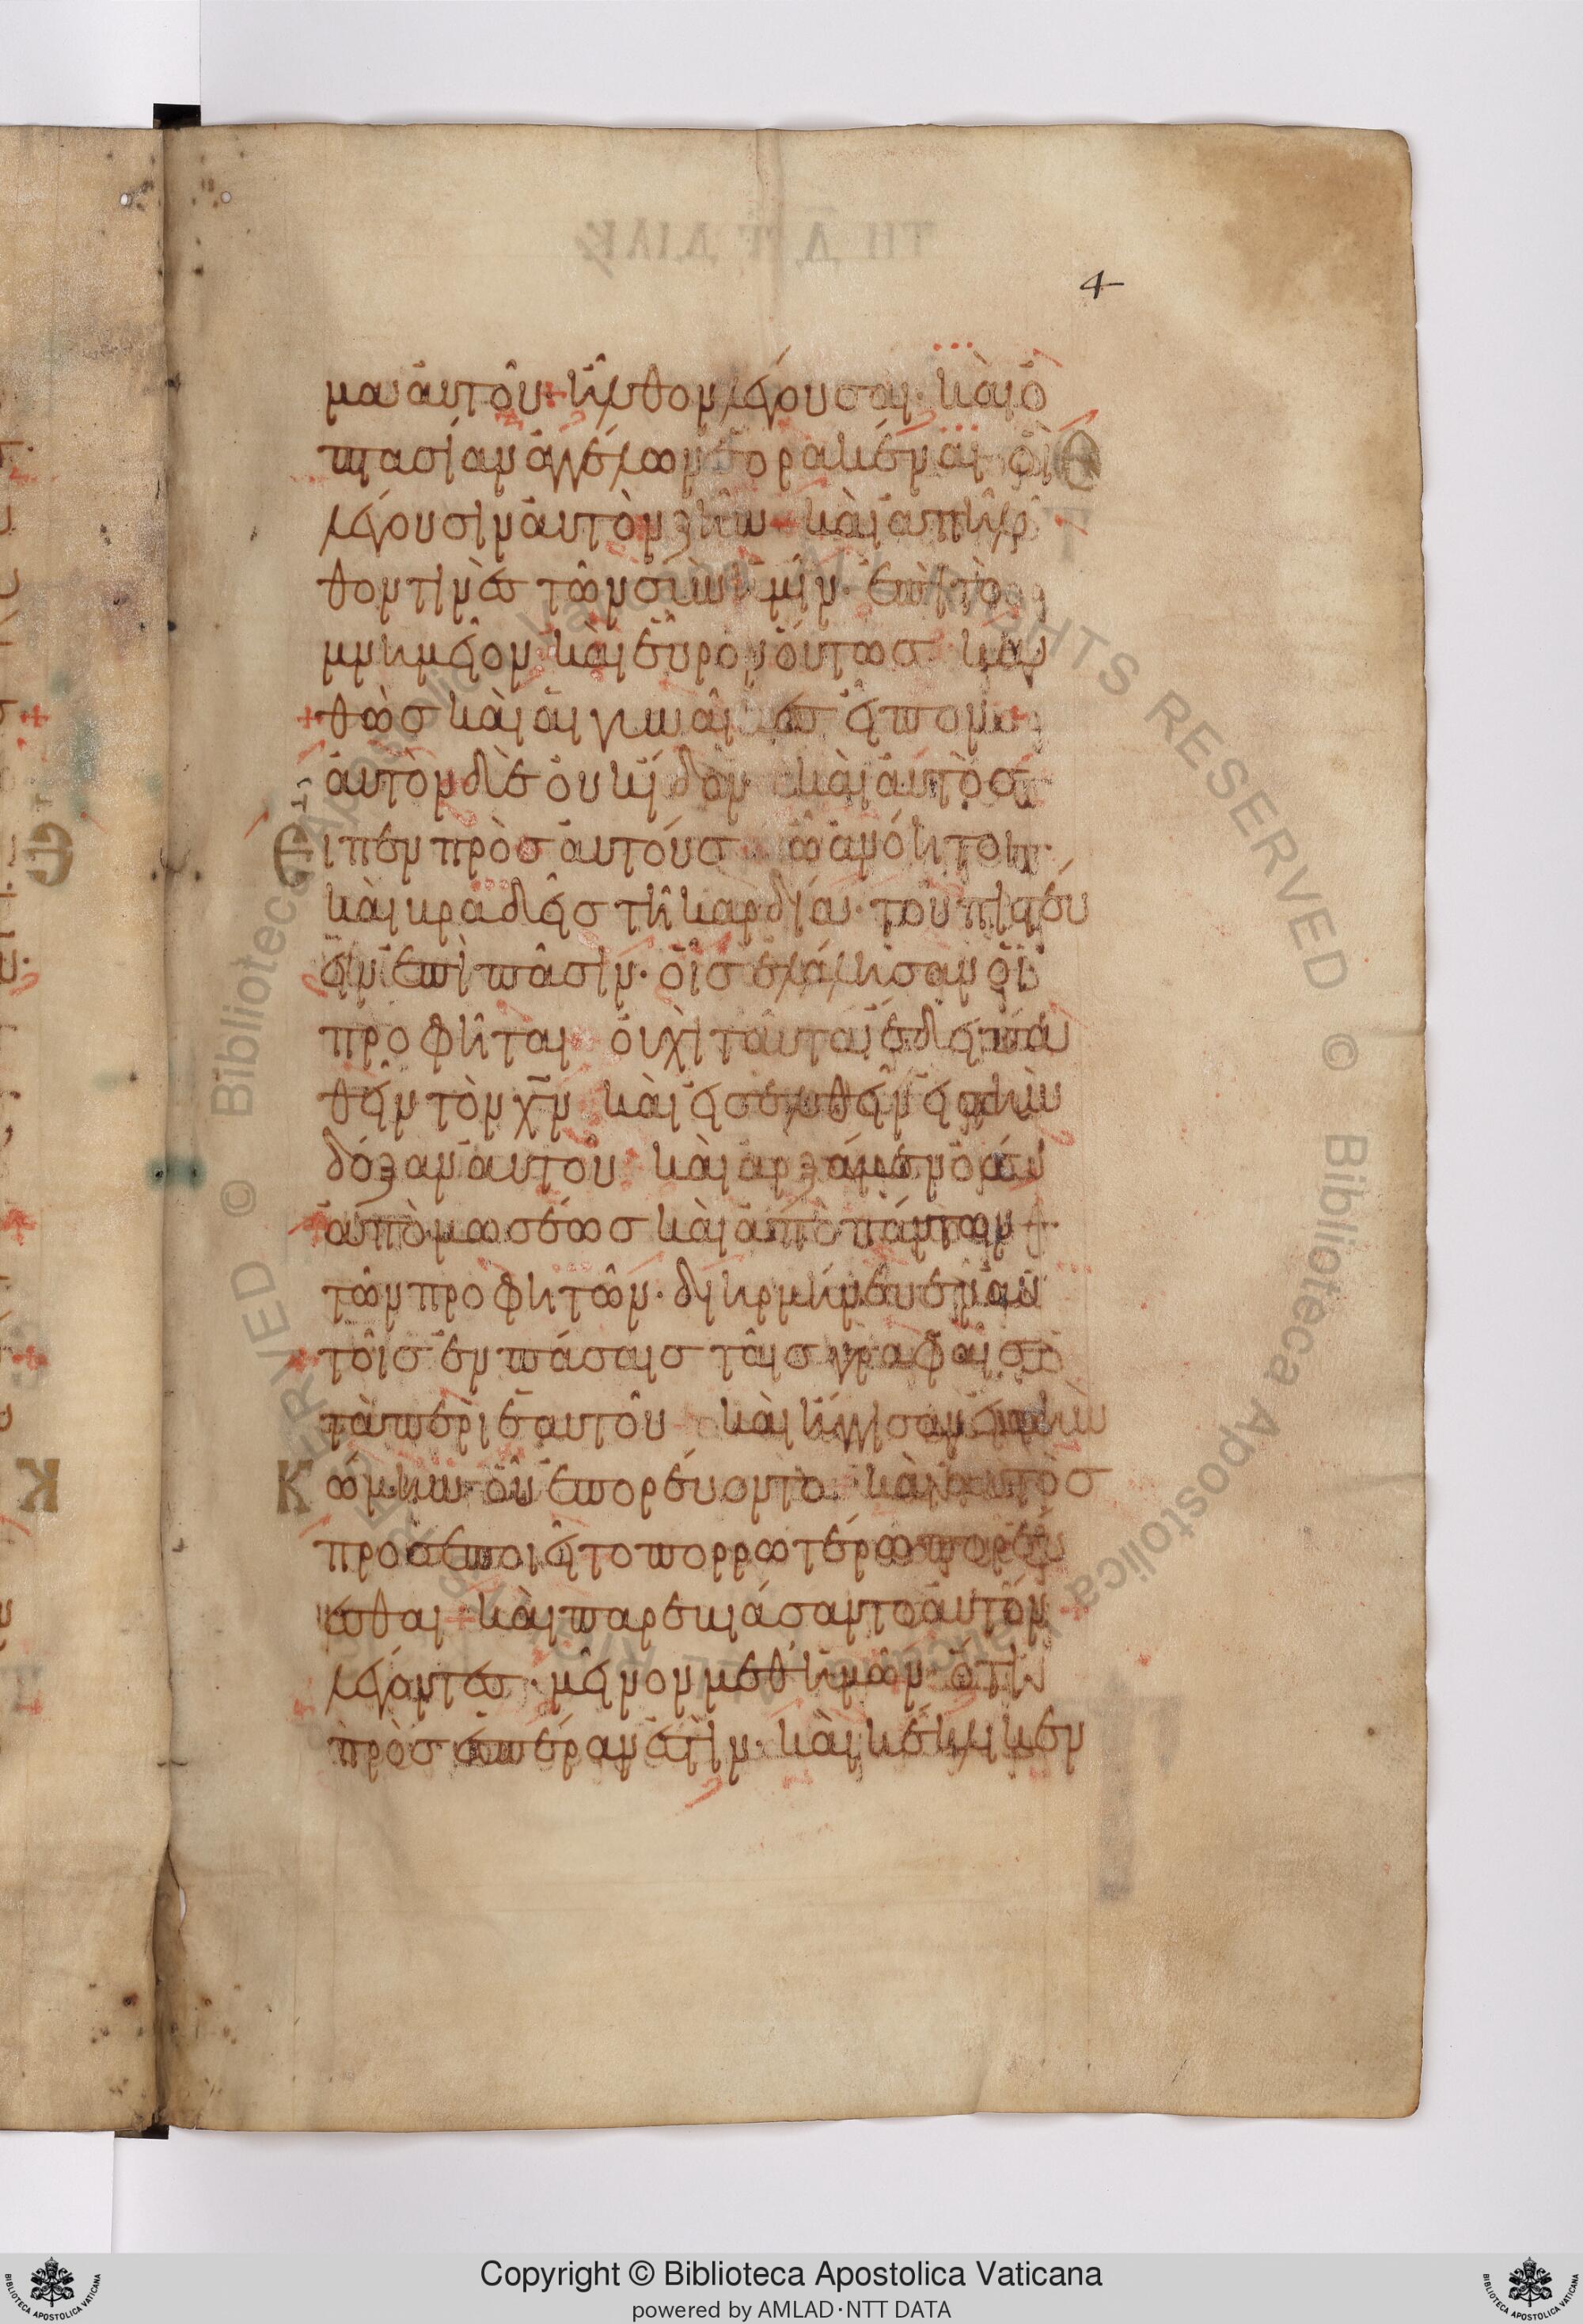 4
μα αὐτοῦ· ἦλθον λέγουσαι· καὶ ὀ
πτασίαν ἀγγέλων ἑορακέναι· οἳ
λέγουσιν αὐτὸν ζῆν· καὶ ἀπῆλ
θόν τινες τῶν σὺν ἡμῖν· ἐπὶ τὸ
μνημεῖον· καὶ εὗρον οὕτως· κα
θὼς καὶ αἱ γυναῖκες εἶπον·
αὐτὸν δὲ οὐκ εἶδον· καὶ αὐτὸς
εἶπεν πρὸς αὐτούς· ὦ ἀνόητοι·
καὶ βραδεῖς τῇ καρδίᾳ· τοῦ πιστεύ
ειν ἐπὶ πᾶσιν· οἷς ἐλάλησαν οἱ
προφῆται· οὐχὶ ταῦτα ἔδει πα
θεῖν τὸν χν̄· καὶ εἰσελθεῖν εἰς τὴν
δόξαν αὐτοῦ· καὶ ἀρξάμενος
ἀπὸ μωσέως καὶ ἀπὸ πάντων
τῶν προφητῶν· διηρμήνευεν αὐ
τοῖς ἐν πάσαις ταῖς γραφαῖς
τὰ περὶ ἑαυτοῦ· καὶ ἤγγισαν εἰς τὴν
κώμην· οὗ ἐπορεύοντο· καὶ αὐτὸς
προσεποιεῖτο πορρωτέρω πορεύ
εσθαι· καὶ παρεβιάσαντο αὐτὸν
λέγοντες· μεῖνον μεθ' ἡμῶν· ὅτι
πρὸς ἑσπέραν ἐστὶν· καὶ κέκλικεν
© Biblioteca Apostolica Vaticana ALL RIGHTS RESERVED © Biblioteca Apostolica Vaticana ALL RIGHTS RESERVED
Copyright © Biblioteca Apostolica Vaticana
powered by AMLAD·NTT DATA
BIBLIOTECA APOSTOLICA VATICANA
BIBLIOTECA APOSTOLICA VATICANA